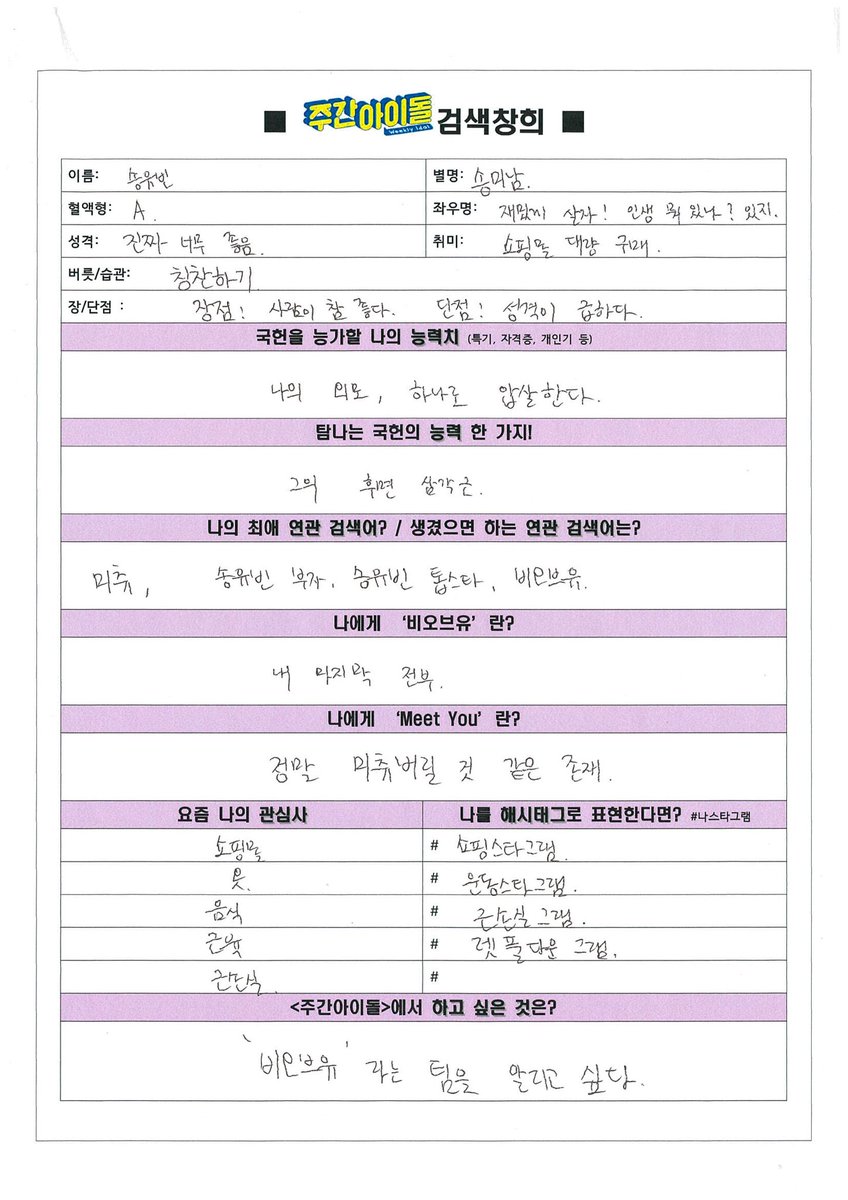 ■ 주간아이돌 Weekly Idol 검색창희 ■
이름: 송유빈 별명: 송미남.
혈액형: A. 좌우명: 재밌게 살자! 인생 뭐 있나? 있지.
성격: 진짜 너무 좋음. 취미: 쇼핑몰 대량 구매.
버릇/습관: 칭찬하기.
장/단점 : 장점! 사람이 참 좋다. 단점! 성격이 급하다.
국헌을 능가할 나의 능력치 (특기, 자격증, 개인기 등)
나의 외모, 하나로 압살한다.
탐나는 국헌의 능력 한 가지!
그의 후면 삼각근.
나의 최애 연관 검색어? / 생겼으면 하는 연관 검색어는?
미츄, 송유빈 부자, 송유빈 톱스타, 비오브유.
나에게 ‘비오브유’ 란?
내 마지막 전부.
나에게 ‘Meet You’ 란?
정말 미츄버릴 것 같은 존재.
요즘 나의 관심사 나를 해시태그로 표현한다면? #나스타그램
쇼핑몰 # 쇼핑스타그램.
옷. # 운동스타그램.
음식 # 근손실 그램.
근육 # 렛풀다운 그램.
근손실. #
<주간아이돌>에서 하고 싶은 것은?
'비오브유' 라는 팀을 알리고 싶다.